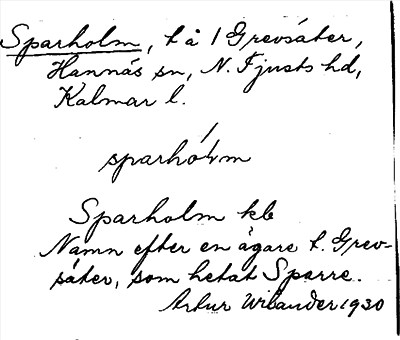 Sparholm, t å 1 Grevsäter,
Hannäs sn, N. Tjusts hd,
Kalmar l.
Sparholm klb
Namn efter en ägare t. Grev-
säter, som hetat Sparre.
Artur Wilander 1930